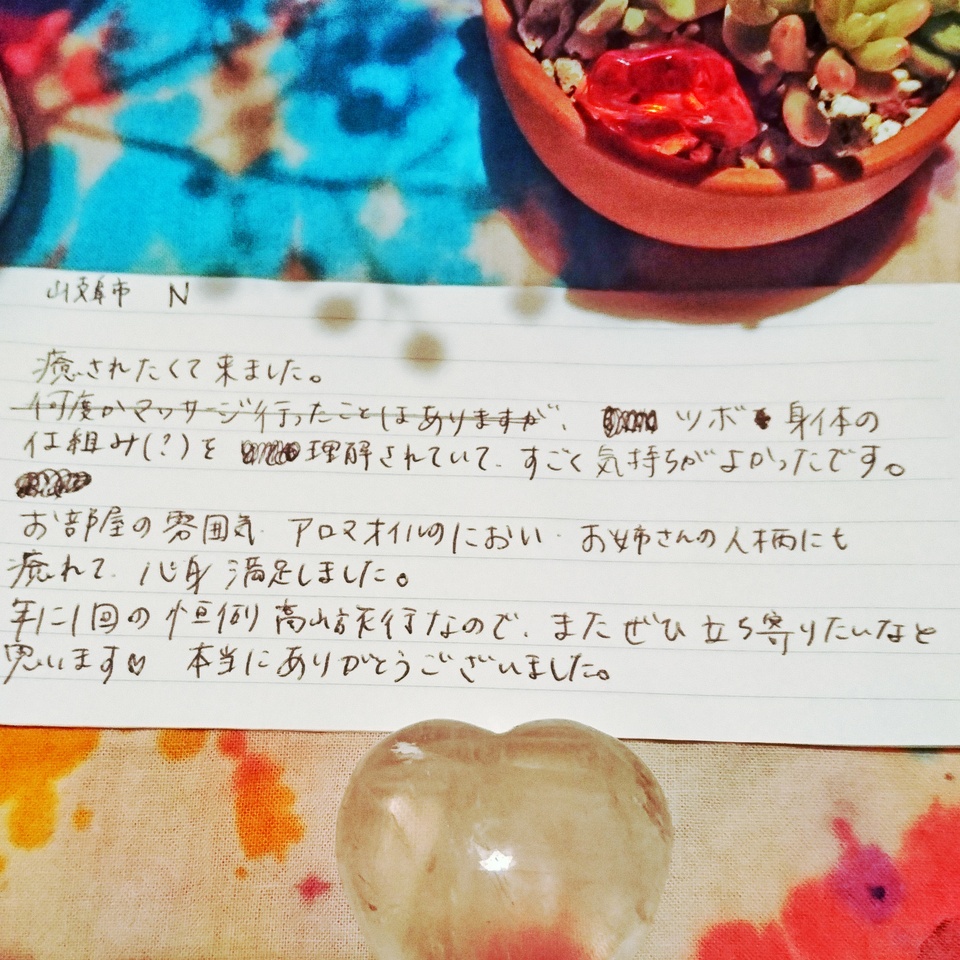 山県市 N
癒されたくて来ました。
何度かマッサージ行ったことはありますが、 ツボ 身体の
仕組み(?)を 理解されていて、すごく気持ちがよかったです。
お部屋の雰囲気、アロマオイルのにおい、お姉さんの人柄にも
癒れて、心身満足しました。
年に1回の恒例高山旅行なので、またぜひ立ち寄りたいなと
思います♡ 本当にありがとうございました。